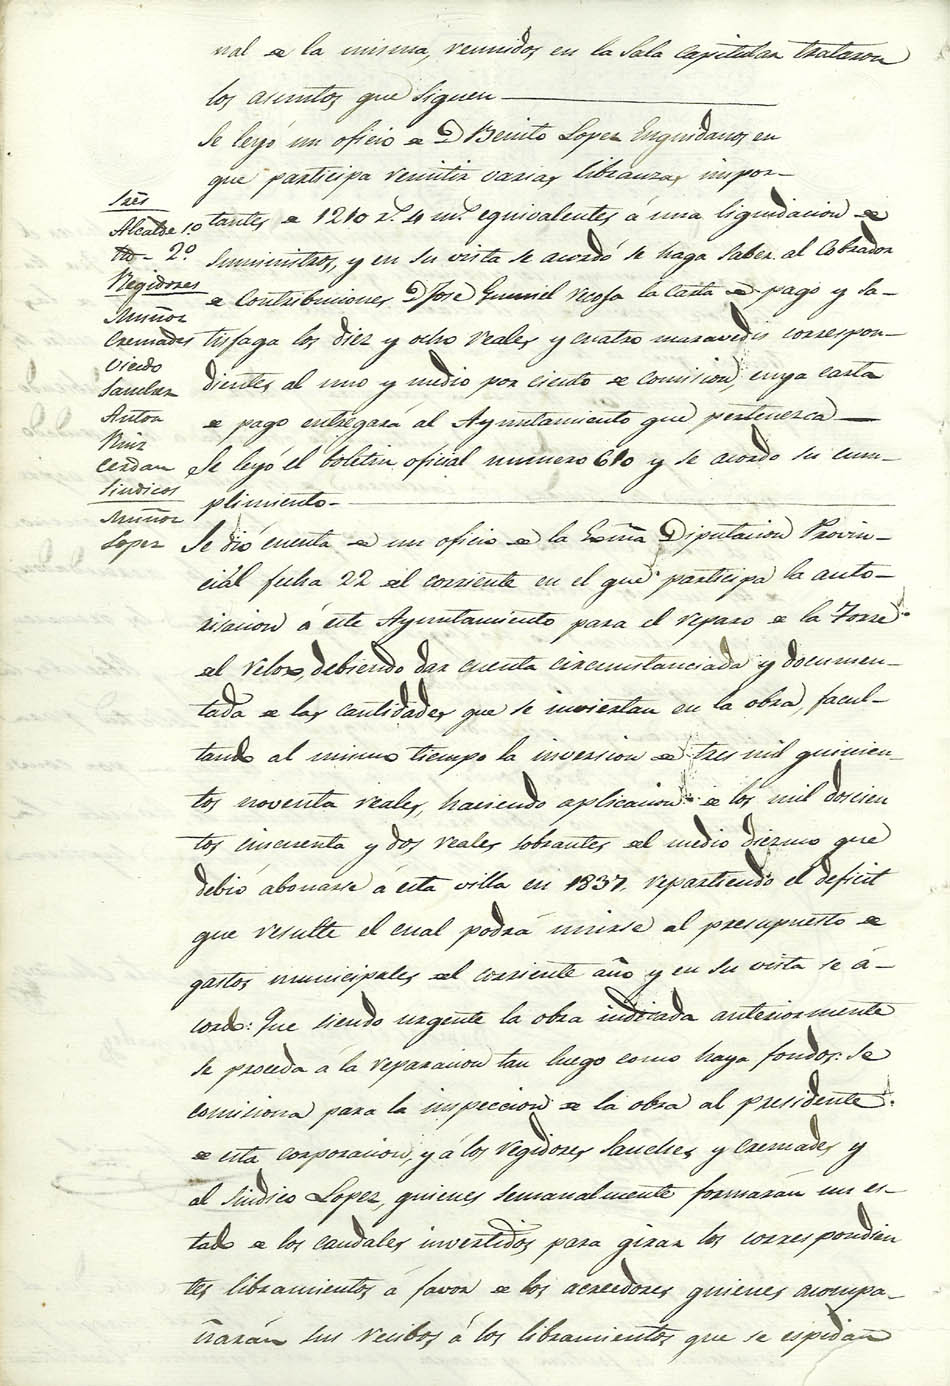 nal de la misma, reunidos en la Sala Capitular trataron
los asuntos que siguen
Se leyó un oficio de D Benito Lopez Enguidanos en
que participa remitir varias libranzas impor-
tantes de 1210 rs. 4 ms. equivalentes á una liquidacion de
suministros, y en su vista se acordó se haga saber al Cobrador
de Contribuciones D Jose Gumiel recoja la Carta de pago y sa-
tisfaga los diez y ocho reales y cuatro maravedis correspon-
dientes al uno y medio por ciento de comision, cuya carta
de pago entregará al Ayuntamiento que pertenezca
Se leyó el boletin oficial numero 610 y se acordó su cum-
plimiento.
Se dió cuenta de un oficio de la Exma Diputacion Provin-
cial fecha 22 del corriente en el que participa la auto-
risacion á este Ayuntamiento para el reparo de la Torre
del relox, debiendo dar cuenta circunstanciada y documen-
tada de las cantidades que se inviertan en la obra, facul-
tando al mismo tiempo la inversion de tres mil quinien-
tos noventa reales, haciendo aplicacion de los mil doscien
tos cincuenta y dos reales sobrantes del medio diezmo que
debió abonarse á esta villa en 1837. repartiendo el deficit
que resulte el cual podrá unirse al presupuesto de
gastos municipales del corriente año y en su vista se á-
cordó: Que siendo urgente la obra indicada anteriormente
se proceda á la reparacion tan luego como haya fondos: Se
comisiona para la inspeccion de la obra al presidente
de esta corporacion, y á los regidores Sanchez y Cremades y
al Sindico Lopez, quienes semanalmente formarán un es-
tado de los caudales invertidos para girar los correspondien
tes libramientos á favor de los acreedores quienes acompa-
ñarán sus recibos á los libramientos que se espidan
Sres
Alcalde 1.o
2.o
Regidores
Muñoz
Cremades
Oviedo
Sanchez
Anton
Ruiz
Cerdan
Sindicos
Muñoz
Lopez